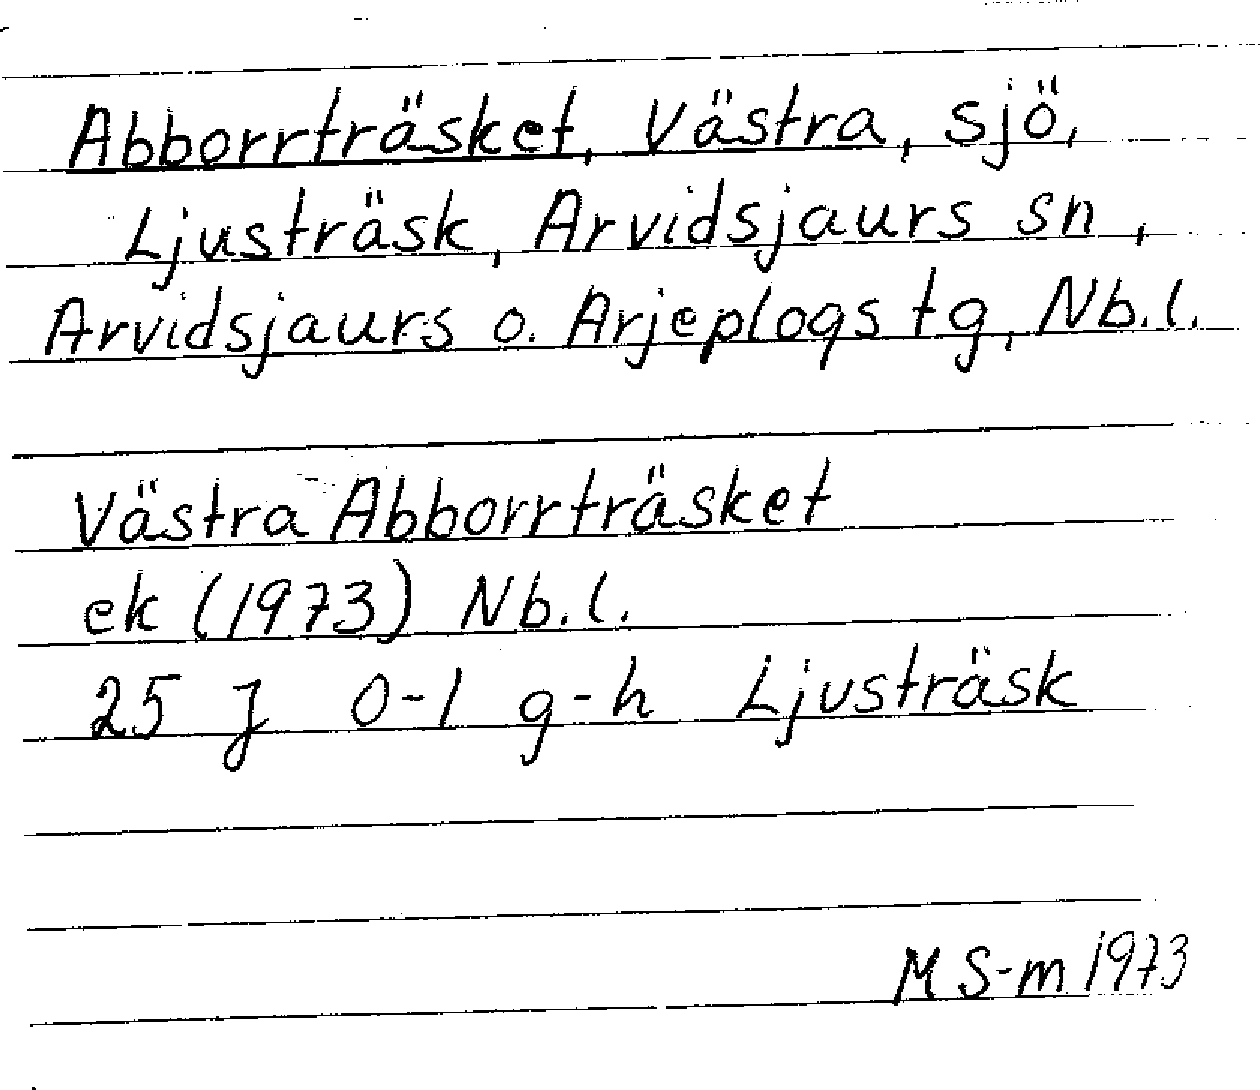 Abborrträsket, Västra, sjö,
Ljusträsk, Arvidsjaurs sn,
Arvidsjaurs o. Arjeplogs tg, Nb.l.
Västra Abborrträsket
ek (1973) Nb.l.
25 J 0-1 g-h Ljusträsk
M S-m 1973